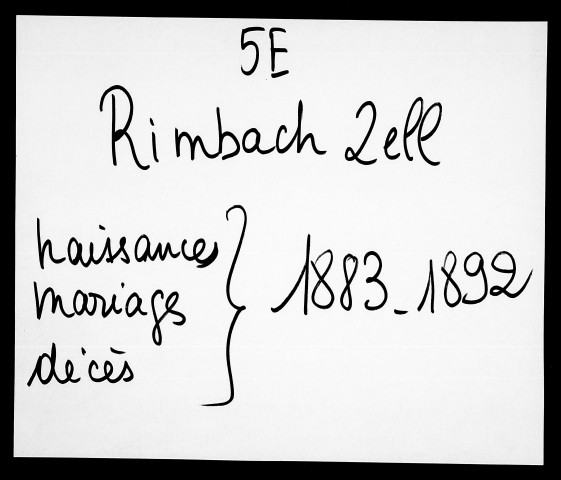 5E
Rimbach Zell
naissances
mariages
décès
1883-1892